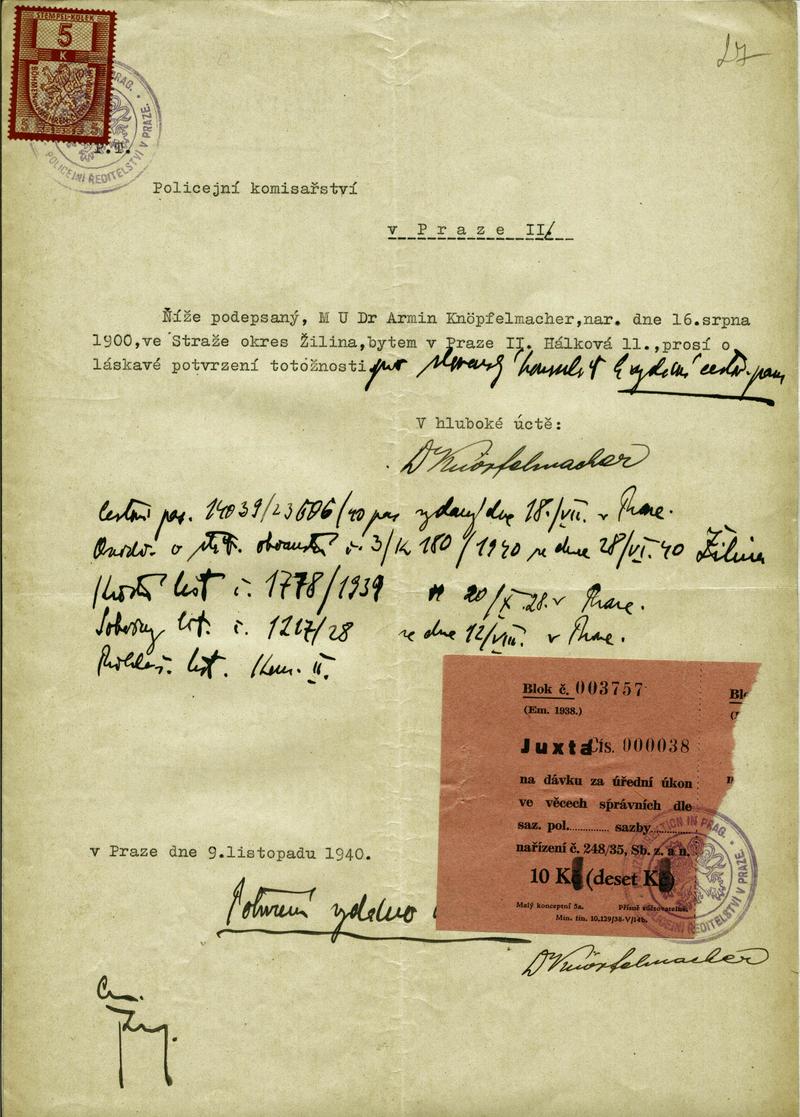 STEMPEL-KOLEK
5
K
27
P.T.
POLICEJNÍ ŘEDITELSTVÍ V PRAZE.
Policejní komisařství
v Praze II/
Níže podepsaný, M U Dr Armin Knöpfelmacher,nar. dne 16.srpna
1900,ve Straže okres Žilina,bytem v Praze II. Hálková 11.,prosí o
láskavé potvrzení totožnosti pro slovenský konsulát k vydání cestov. pasu
V hluboké úctě:
Dr Knöpfelmacher
Cestovní pas. 14039/23606/40 pas vydaný dne 18./VII. v Praze.
o stát. č. 3/K 180/1940 ze dne 28/VI.40 Žilina
list č. 1778/1939 20/X.28. v Praze.
list. č. 1217/28 ze dne 12/VIII. v Praze.
list. Kom. II.
Blok č. 003757
(Em. 1938.)
Juxta Čís. 000038
na dávku za úřední úkon
ve věcech správních dle
saz. pol. sazby
nařízení č. 248/35, Sb. z. a n.
10 K (deset K)
Malý konceptní 5a. Přísně
Min. fin. 10.129/38-V/14b.
DIREKTION IN PRAG.
POLICEJNÍ ŘEDITELSTVÍ V PRAZE.
v Praze dne 9.listopadu 1940.
Potvrzení vydáno
Dr Knöpfelmacher